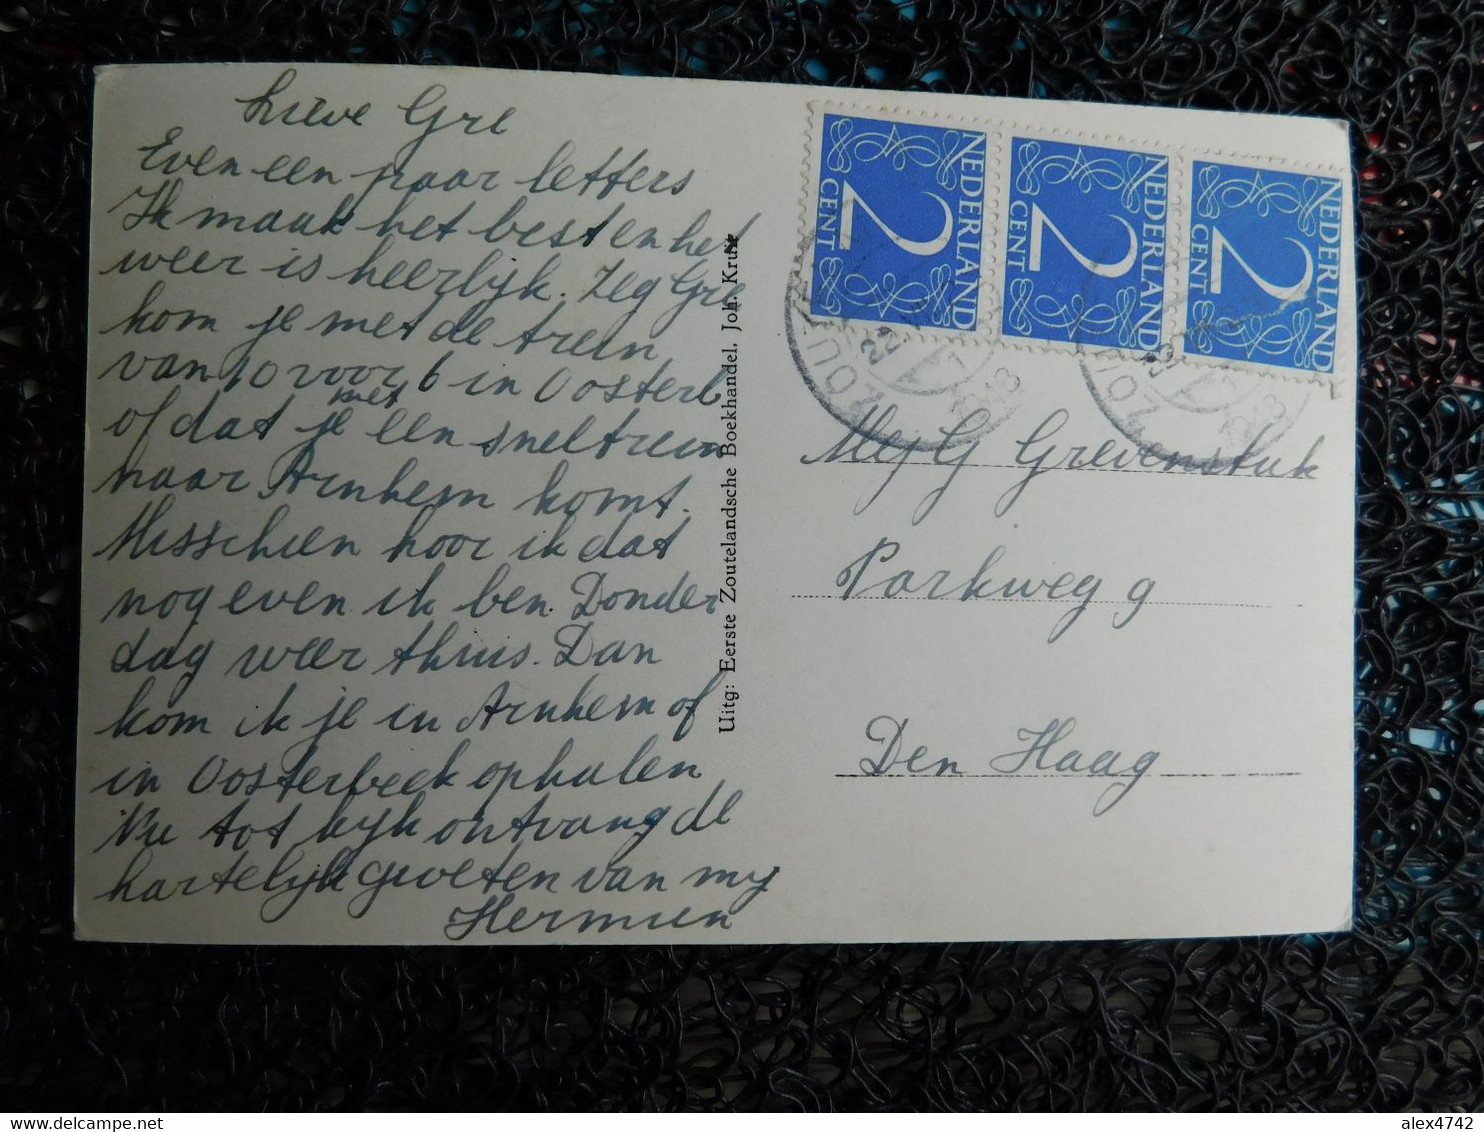 Lieve Gre
Even een paar letters
Ik maak het best en het
weer is heerlijk. Zeg Gre
kom je met de trein
van 10 voor 6 in Oosterb
of dat je met een sneltrein
naar Arnhem komt.
Misschien hoor ik dat
nog even ik ben Donder
dag weer thuis. Dan
kom ik je in Arnhem of
in Oosterbeek ophalen
Nu tot kijk ontvang de
hartelijk groeten van mij
Hermien
Uitg: Eerste Zoutelandsche Boekhandel, Joh. Kruit
NEDERLAND
2
CENT
NEDERLAND
2
CENT
NEDERLAND
2
CENT
Mej G Grevenstuk
Parkweg 9
Den Haag
alex4742